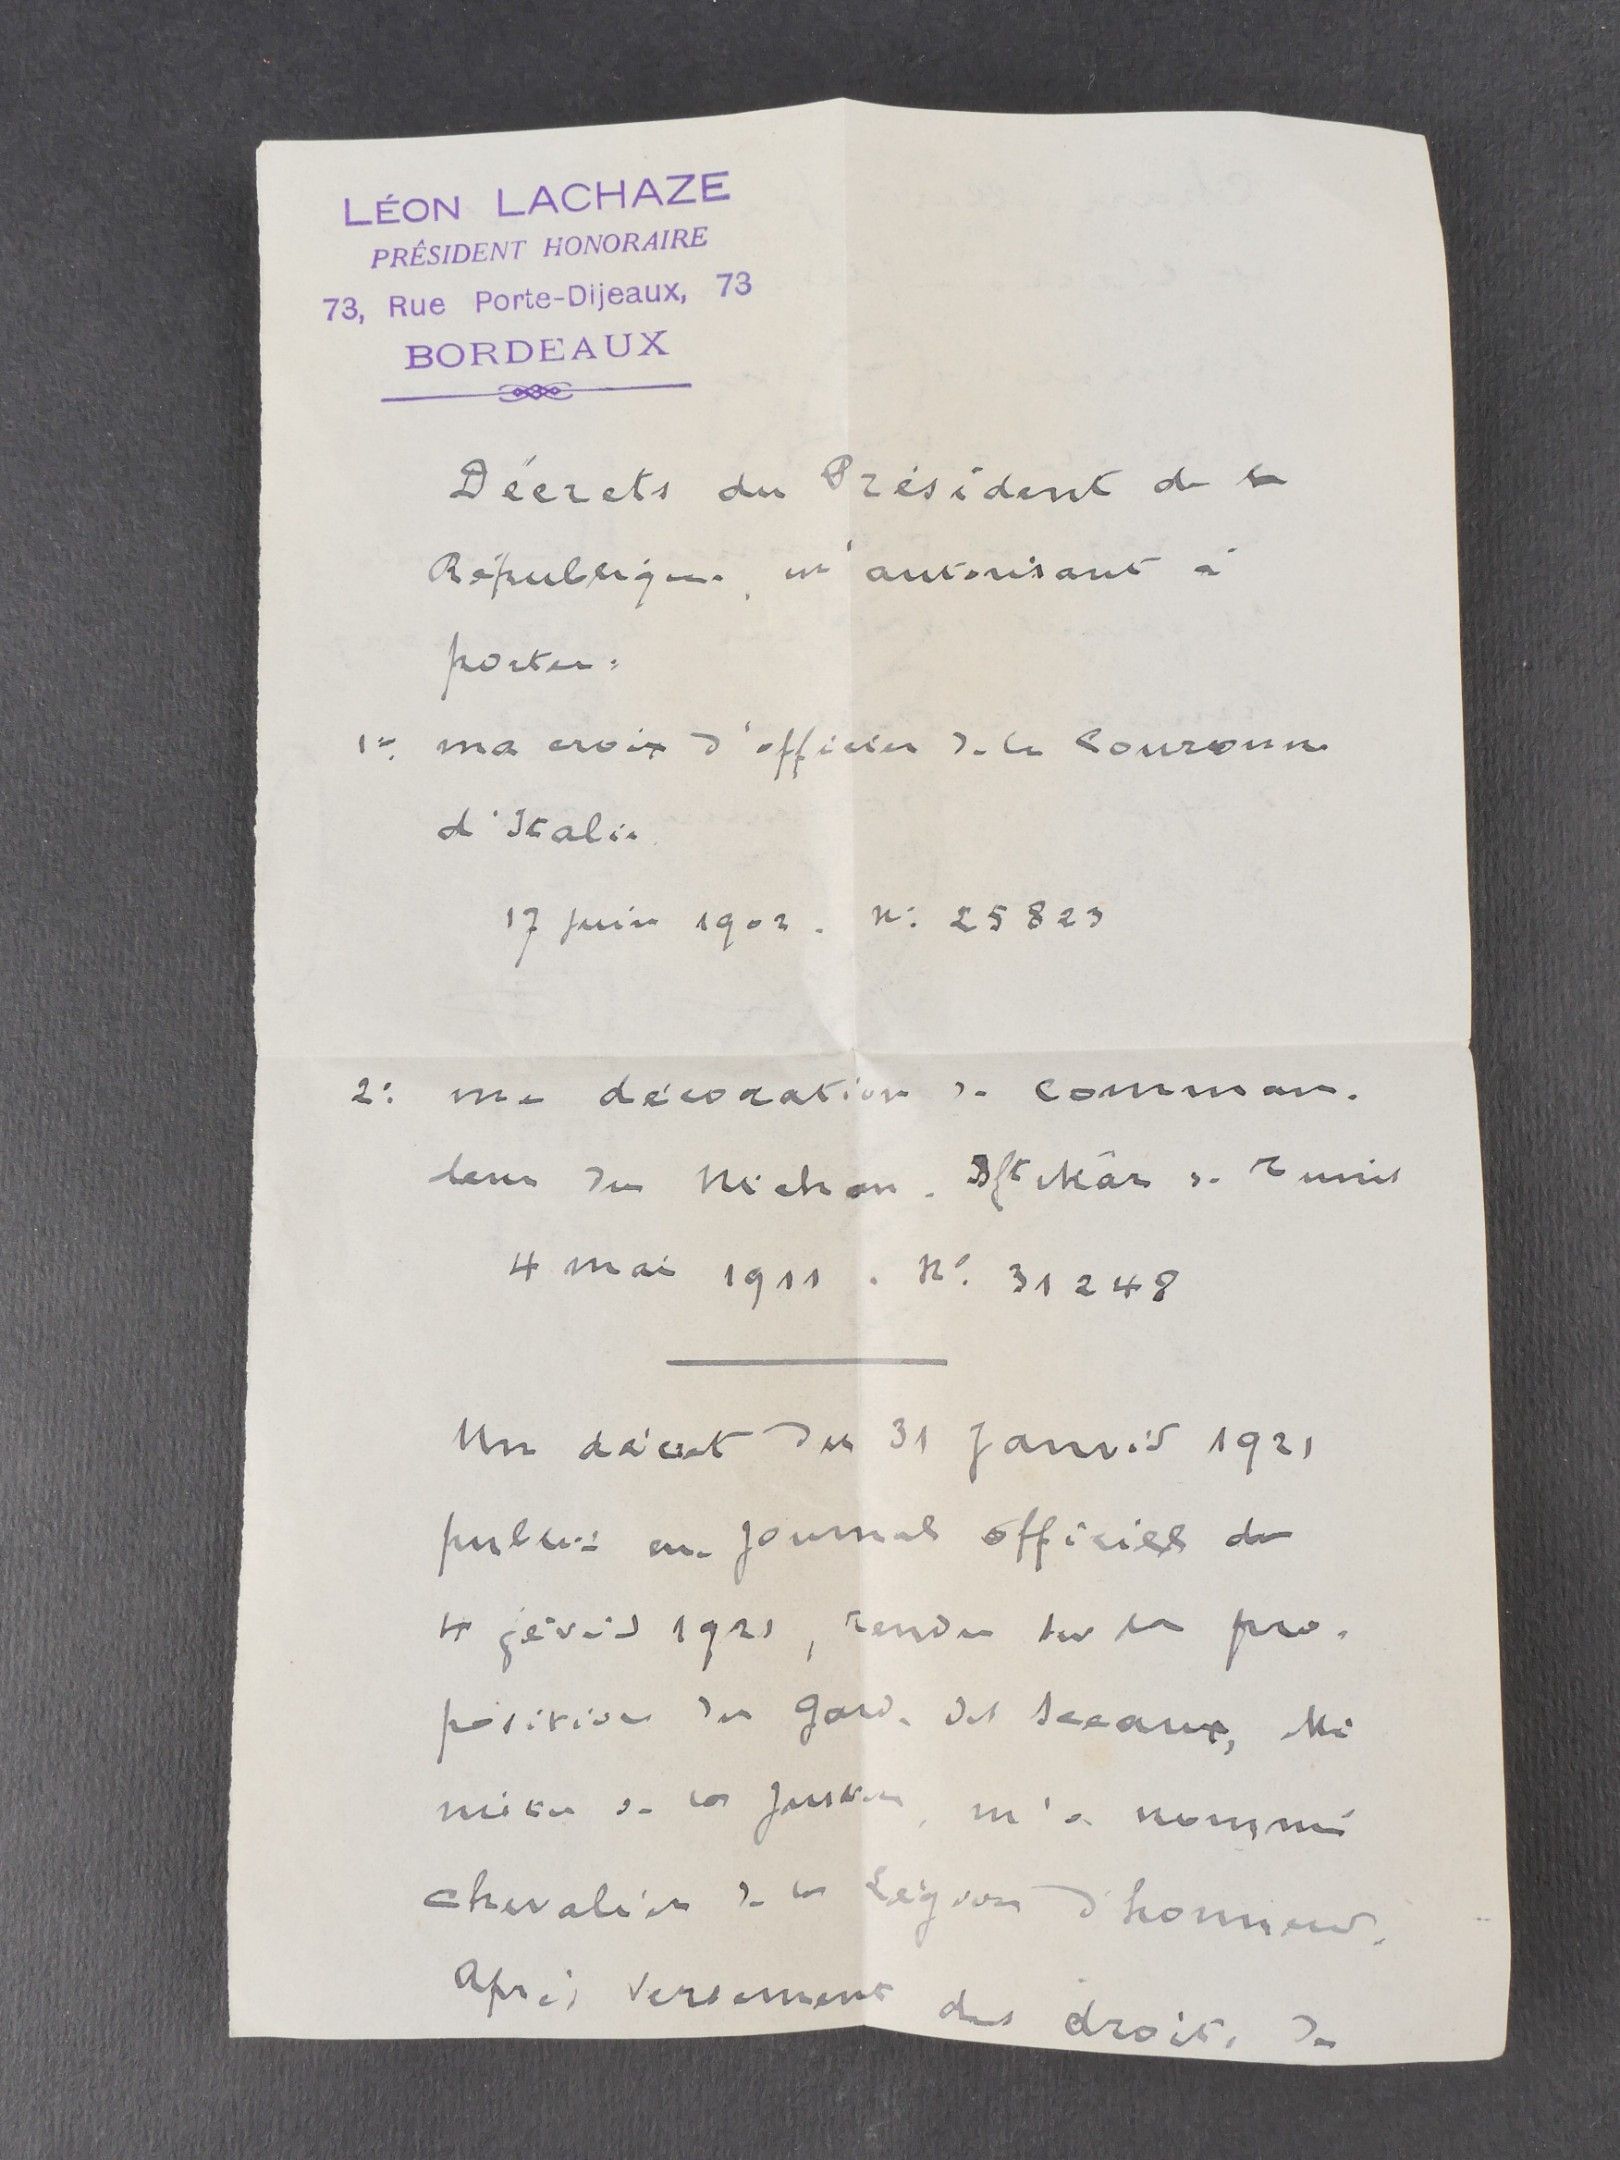 LÉON LACHAZE
PRÉSIDENT HONORAIRE
73, Rue Porte-Dijeaux, 73
BORDEAUX
Décrets du Président de la
République, m'autorisant à
porter:
1º: ma croix d'officier de la Couronne
d'Italie
17 juin 1902. Nº: 25823
2º: ma décoration de comman-
deur du Nichan-Iftikâr de Tunis
4 mai 1911. Nº: 31248
Un décret du 31 Janvier 1921
publié au Journal officiel du
4 février 1921, rendu sur la pro-
position du Garde des Sceaux, Mi
nistre de la Justice, m'a nommé
chevalier de la Légion d'honneur.
Après versement des droits de